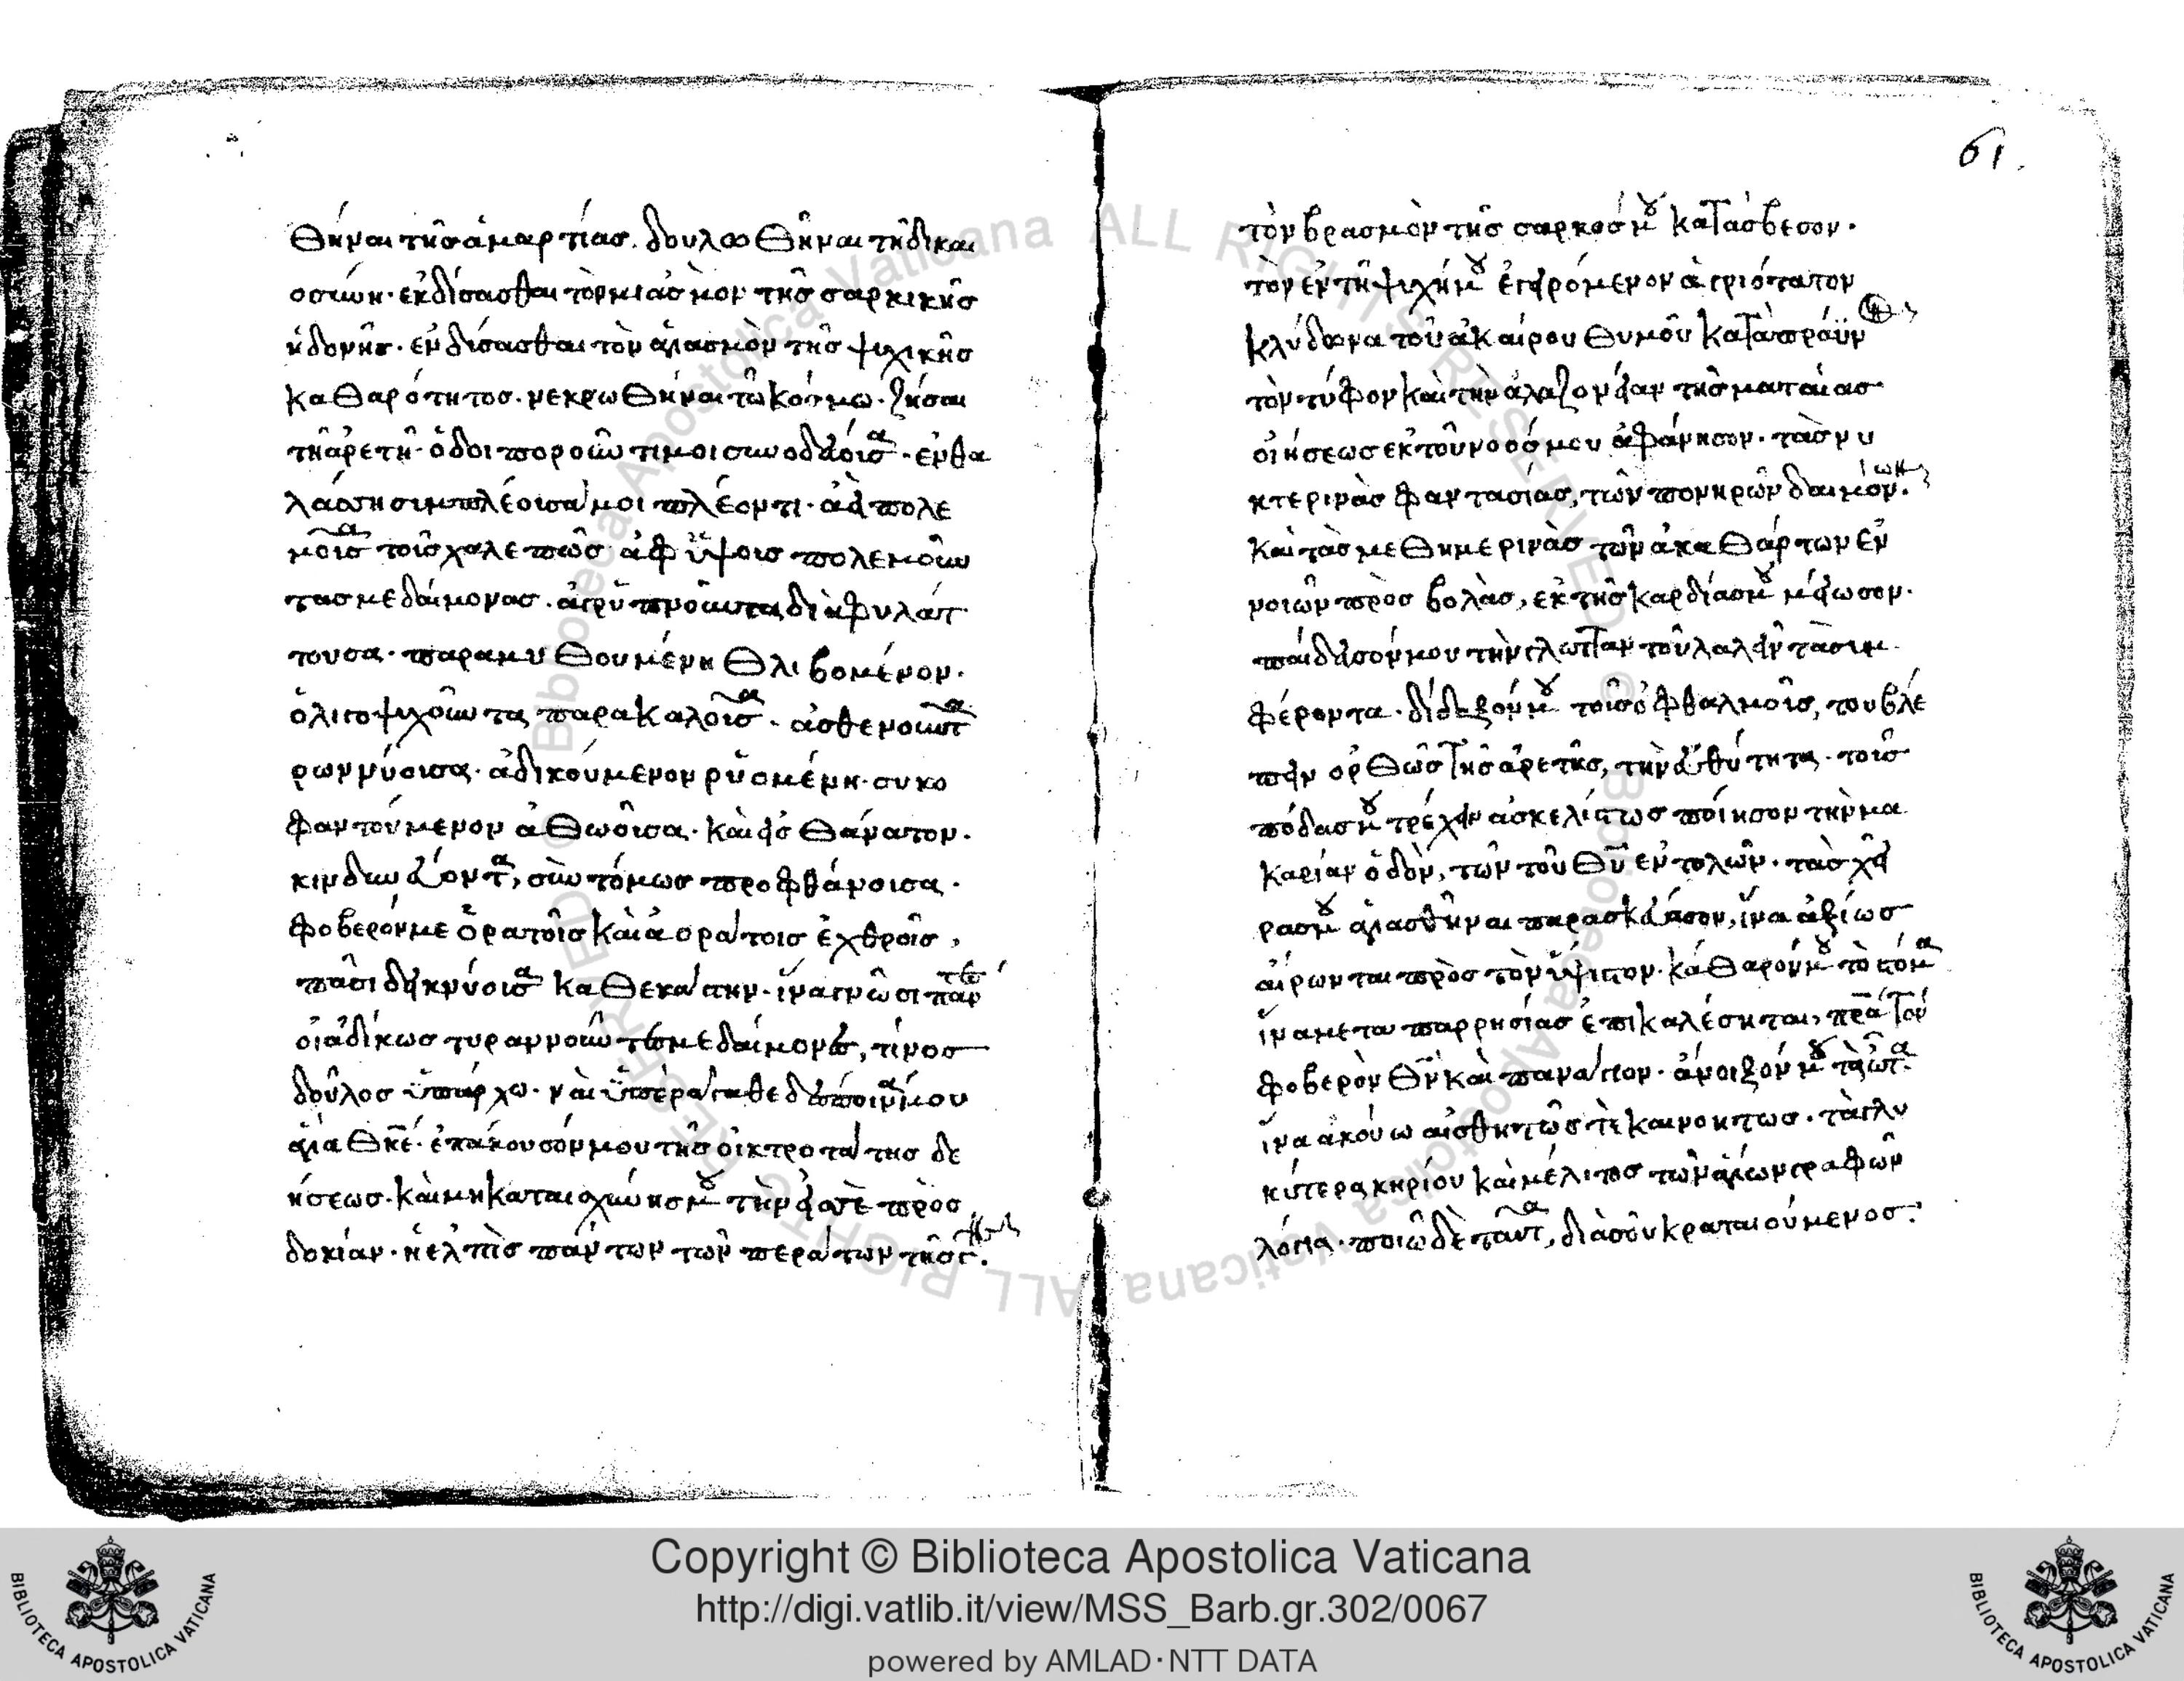 61.
θῆναι τῆς ἁμαρτίας. δουλωθῆναι τῆ δικαι
οσύνη· ἐκδύσασθαι τὸν μιασμὸν τῆς σαρκικῆς
ἡδονῆς· ἐνδύσασθαι τὸν ἁγιασμὸν τῆς ψυχικῆς
καθαρότητος· νεκρωθῆναι τῶ κόσμω· ζῆσαι
τῆ ἀρετῆ· ὁδοιποροῦντί μοι συνοδεύουσα· ἐν θα
λάσση συμπλέουσά μοι πλέοντι·
τοῖς χαλεπῶς πολεμοῦν
τας με δαίμονας· ἀγρυπνοῦντα διαφυλάτ
τουσα· παραμυθουμένη θλιβόμενον·
ὀλιγοψυχοῦντα παρακαλοῦσα· ἀσθενοῦντα
ρωννύουσα· ἀδικούμενον ρυομένη· συκο
φαντούμενον ἀθωοῦσα· καὶ εἰς θάνατον·
κινδυνεύοντα, συντόμως προφθάνουσα·
φοβερόν με ὁρατοῖς καὶ ἀοράτοις ἐχθροῖς,
πᾶσι δεικνύουσα καθεκάστην· ἵνα γνῶσι πάντες
οἱ ἀδίκως τυραννοῦντές με δαίμονες, τίνος
δοῦλος ὑπάρχω· ναὶ ὑπεράγαθε δέσποινά μου
ἁγία θκε· ἐπάκουσόν μου τῆς οἰκτροτάτης δε
ήσεως· καὶ μὴ καταισχύνης μου τὴν εἰς σὲ προσ
δοκίαν· ἡ ἐλπὶς πάντων τῶν περάτων τῆς γῆς·
τὸν βρασμὸν τῆς σαρκός μου κατάσβεσον·
τὸν ἐν τῆ ψυχῆ μου ἐγειρόμενον ἀγριώτατον
κλύδωνα τοῦ ἀκαίρου θυμοῦ καταπράϋνον
τὸν τύφον καὶ τὴν ἀλαζονείαν τῆς ματαίας
οἰήσεως ἐκ τοῦ νοός μου ἀφάνισον· τὰς νυ
κτερινὰς φαντασίας, τῶν πονηρῶν δαιμόνων·
καὶ τὰς μεθημερινὰς τῶν ἀκαθάρτων ἐν
νοιῶν προσβολὰς, ἐκ τῆς καρδίας μου μείωσον·
παίδευσόν μου τὴν γλῶτταν τοῦ λαλεῖν τὰ συμ
φέροντα· δίδαξόν μου τοὺς ὀφθαλμοὺς, τοῦ βλέ
πειν ὀρθῶς τῆς ἀρετῆς, τὴν εὐθύτητα· τοὺς
πόδας μου τρέχειν ἀσκελίστως ποίησον τὴν μα
καρίαν ὁδὸν, τῶν τοῦ θυ ἐντολῶν· τὰς χεῖ
ρας μου ἁγιασθῆναι παρασκεύασον, ἵνα ἀξίως
αἴρωνται πρὸς τὸν ὕψιστον· κάθαρόν μου τὸ στόμα
ἵνα μετὰ παρρησίας ἐπικαλέσηται, πρα τὸν
φοβερὸν θν καὶ πανάγιον· ἄνοιξόν μου τὰ ὦτα
ἵνα ἀκούω αἰσθητῶς τὲ καὶ νοητῶς· τὰ γλυ
κύτερα κηρίου καὶ μέλιτος τῶν ἁγίων γραφῶν
λόγια· ποιῶ δὲ ταῦτα, διὰ σοῦ κραταιούμενος·
Copyright © Biblioteca Apostolica Vaticana
http://digi.vatlib.it/view/MSS_Barb.gr.302/0067
powered by AMLAD·NTT DATA
BIBLIOTECA APOSTOLICA VATICANA
BIBLIOTECA APOSTOLICA VATICANA